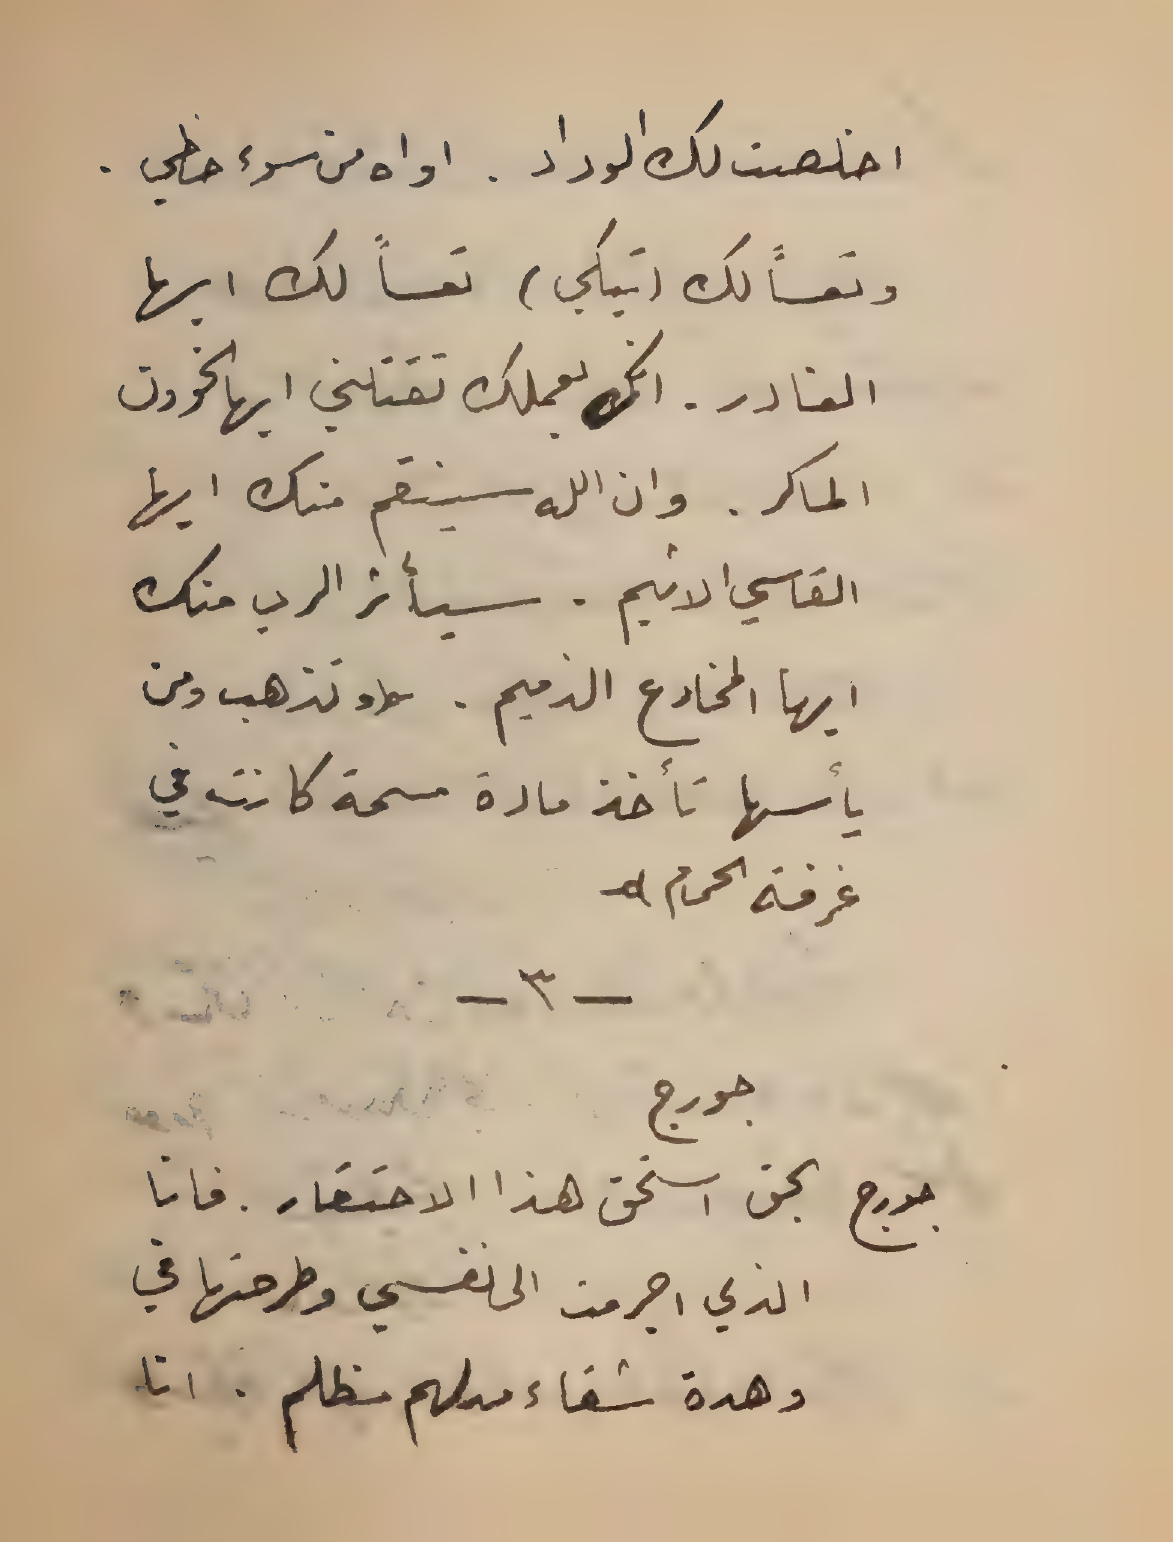 اخلصت لك الوداد . اواه من سوء حظي .
وتعساً لك (تبكي) تعساً لك ايها
الغادر . انك بعملك تقتلني ايها الخؤون
الماكر . وان الله سينتقم منك ايها
القاسي الاثيم . سيأثر الرب منك
ايها المخادع الذميم . وتذهب ومن
يأسها تأخذ مادة مسمة كانت في
غرفة الحمام
— ٣ —
جورج
جورج بحق استحق هذا الاحتقار . فانا
الذي اجرمت الى نفسي وطرحتها في
وهدة شقاء مدلهم مظلم . انا